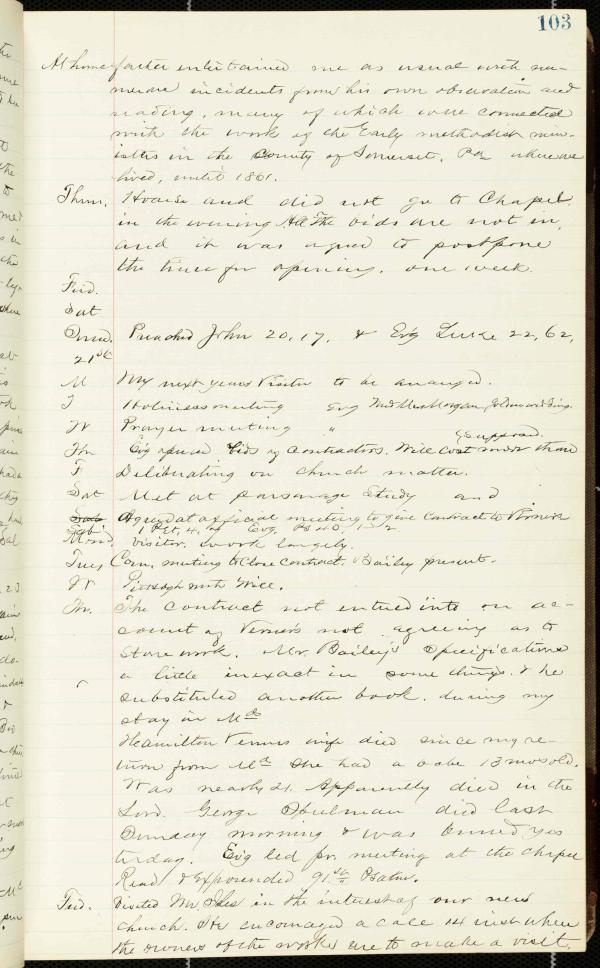 103
At home father entertained me as usual with nu-
merous incidents from his own observation and
reading, many of which were connected
with the work of the Early methodist min-
isters in the County of Somerset, Pa where we
lived, until 1861.
Thurs. Hoarse and did not go to Chapel
in the evening All The bids are not in,
and it was agreed to postpone
the time for opening, one week.
Frid.
Sat
Preached John 20,17, & Ev'g Luke 22,62,
21st
M My next years Visitor to be arranged.
T Holiness meeting Evg
W Prayer meeting "
Ev'g opened bids of contractors. Will cost more than
supposed.
F Deliberating on church matter.
Sat Met at parsonage Study and
Agreed at official meeting to give contract to Verner
Sab. 1 Pet, 4, Evg. Ps
Mond. Visitor. work largely.
Tues Com. meeting to close contract. Bailey present.
W with Will.
Th. The contract not entered into on ac-
count of Verner's not agreeing as to
Stone work. Mr. Bailey's Specifications
a little inexact in some things. & he
substituted another book. during my
stay in Md
Hamilton wife died since my re-
turn from Md She had a babe 13 mos old.
Was nearly 21. Apparently died in the
Lord. George died last
Sunday morning & was buried yes
terday. Ev'g led pr. meeting at the Chapel
Read & Expounded 91st Psalm.
Frid. Visited Mr in the interest of our new
church. He encouraged a call 14 inst when
the owners of the works are to make a visit.